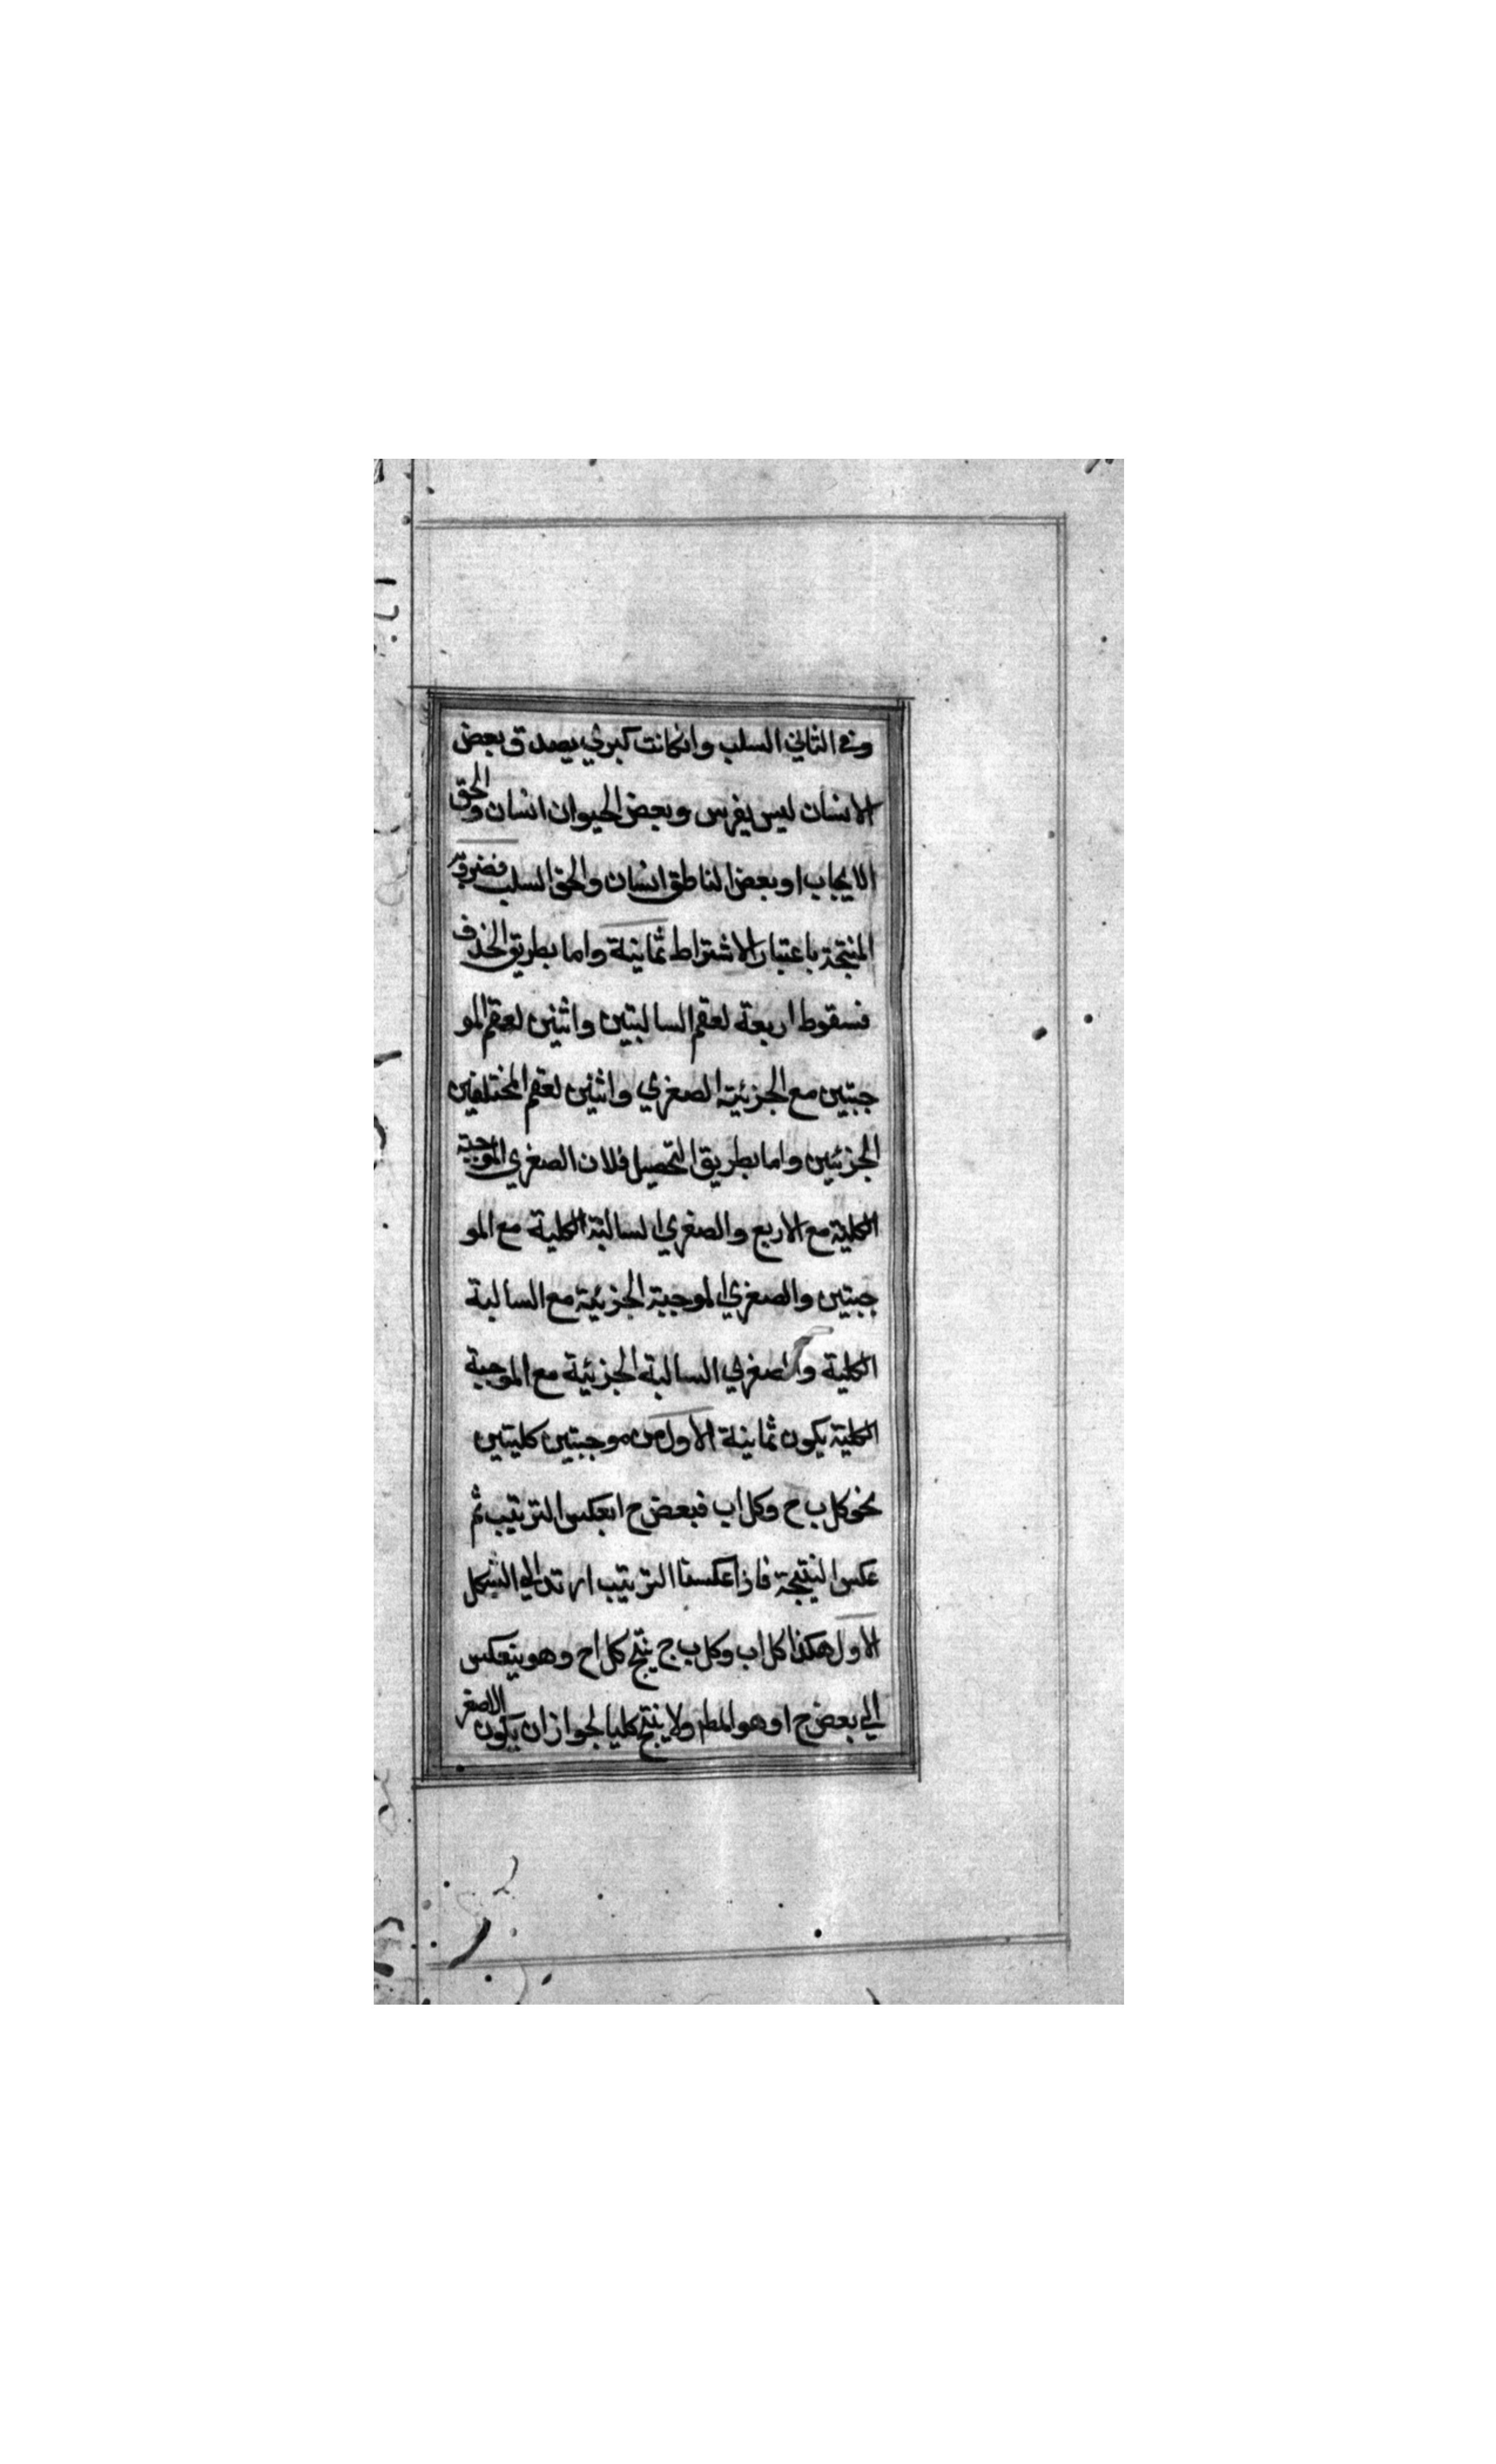 وفي الثاني السلب وان كانت كبري يصدق بعض
الانسان ليس بفرس وبعض الحيوان انسان والحق
الايجاب او بعض الناطق انسان والحق السلب فضروبه
المنتجة باعتبار الاشتراط ثمانية واما بطريق الحذف
فسقوط اربعة لعقم السالبتين واثنين لعقم المو
جبتين مع الجزئية الصغري واثنين لعقم المختلفين
الجزئيين واما بطريق التحصيل فلان الصغري الموجبة
الكلية مع الاربع والصغري السالبة الكلية مع المو
جبتين والصغري الموجبة الجزئية مع السالبة
الكلية والصغري السالبة الجزئية مع الموجبة
الكلية يكون ثمانية الاول من موجبتين كليتين
نحو كل ب ج وكل اب فبعض ج ا بعكس الترتيب ثم
عكس النتيجة فاذا عكسنا الترتيب ارتد الي الشكل
الاول هكذا كل اب وكل ب ج ينتج كل اج وهو ينعكس
الي بعض ج ا وهو المط ولا ينتج كليا لجواز ان يكون الاصغر